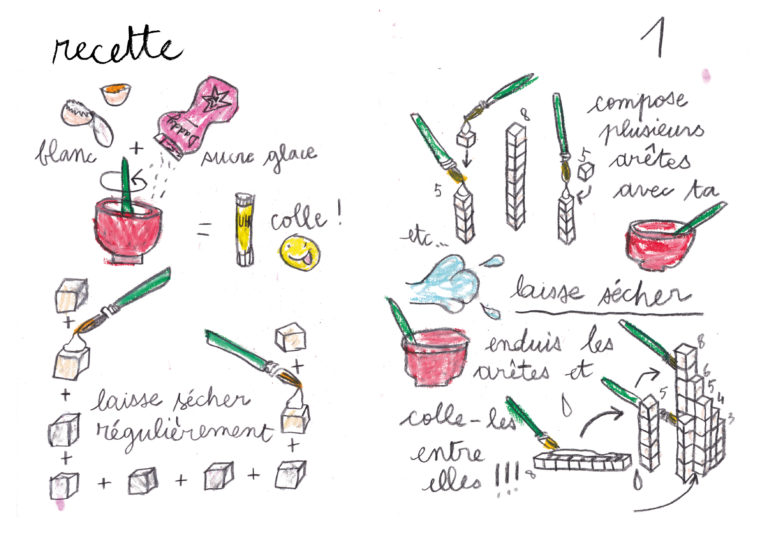 recette
blanc
+
Daddy
sucre glace
=
UHU
colle !
+
+
+
+
+
laisse sécher
régulièrement
+ + +
1
8
5
5
compose
plusieurs
arêtes
avec ta
etc...
laisse sécher
enduis les
arêtes et
colle-les
entre
elles !!!
8
8
6
5
4
3